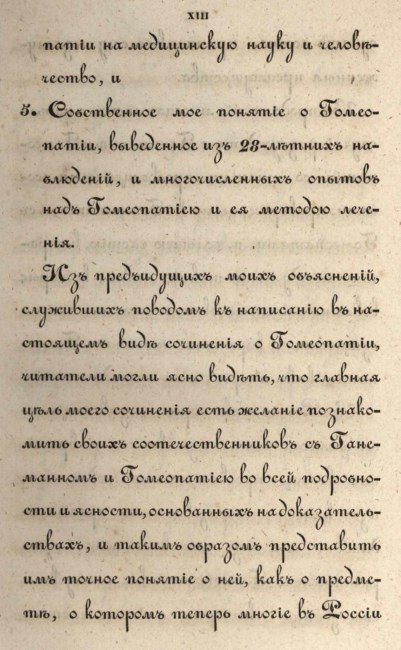 XIII
патіи на медицинскую науку и человѣ-
чество, и
5. Собственное мое понятіе о Гомео-
патіи, выведенное изъ 23-лѣтнихъ на-
блюденій, и многочисленныхъ опытовъ
надъ Гомеопатіею и ея методою лече-
нія.
Изъ предъидущихъ моихъ объясненій,
служившихъ поводомъ къ написанію въ на-
стоящемъ видѣ сочиненія о Гомеопатіи,
читатели могли ясно видѣть, что главная
цѣль моего сочиненія есть желаніе познако-
мить своихъ соотечественниковъ съ Гане-
манномъ и Гомеопатіею во всей подробно-
сти и ясности, основанныхъ на доказатель-
ствахъ, и такимъ образомъ представить
имъ точное понятіе о ней, какъ о предме-
тѣ, о которомъ теперь многіе въ Россіи